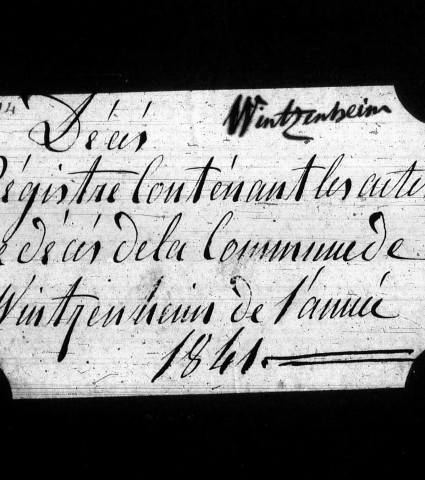 14
Wintzenheim
Décès
Régistre Conténant les actes
de décès de la Commune de
Wintzenheim de l'année
1841.